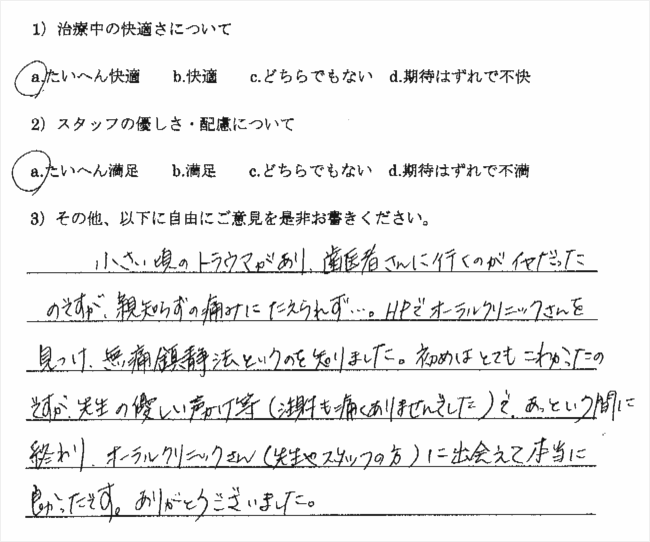 1）治療中の快適さについて
a.たいへん快適 b.快適 c.どちらでもない d.期待はずれで不快
2）スタッフの優しさ・配慮について
a.たいへん満足 b.満足 c.どちらでもない d.期待はずれで不満
3）その他、以下に自由にご意見を是非お書きください。
小さい頃のトラウマがあり、歯医者さんに行くのがイヤだった
のですが、親知らずの痛みにたえられず…。HPでオーラルクリニックさんを
見つけ、無痛鎮静法というのを知りました。初めはとてもこわかったの
ですが、先生の優しい声かけ等（注射も痛くありませんでした）で、あっという間に
終わり、オーラルクリニックさん（先生やスタッフの方）に出会えて本当に
良かったです。ありがとうございました。